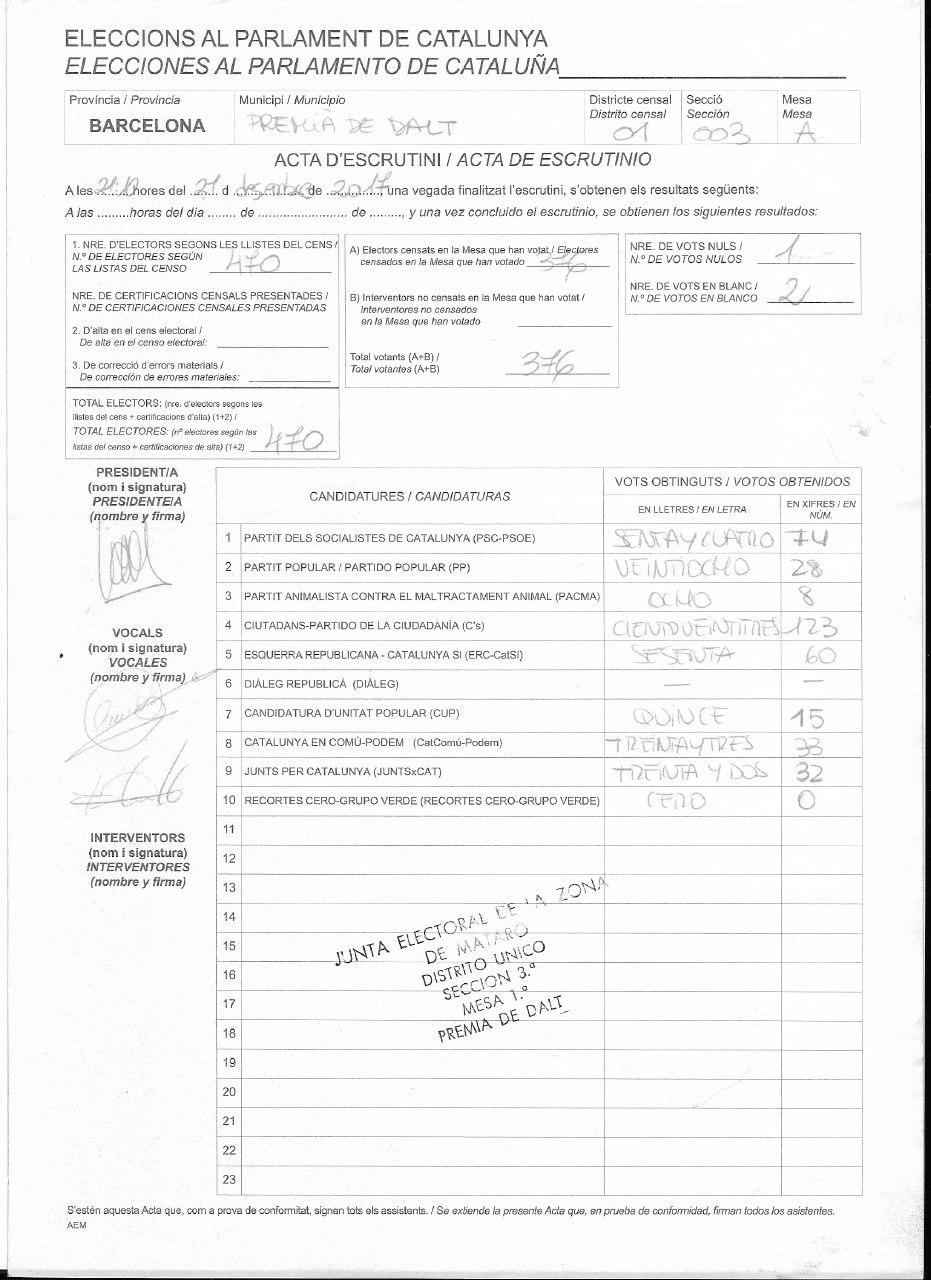 ELECCIONS AL PARLAMENT DE CATALUNYA
ELECCIONES AL PARLAMENTO DE CATALUÑA
Província / Provincia
BARCELONA
Municipi / Municipio
PREMIÀ DE DALT
Districte censal
Distrito censal
01
Secció
Sección
003
Mesa
Mesa
A
ACTA D'ESCRUTINI / ACTA DE ESCRUTINIO
A les hores del 21 d desembre de 2017, una vegada finalitzat l'escrutini, s'obtenen els resultats següents:
A las .........horas del día ........ de ........................ de ........., y una vez concluido el escrutinio, se obtienen los siguientes resultados:
1. NRE. D'ELECTORS SEGONS LES LLISTES DEL CENS /
N.º DE ELECTORES SEGÚN
LAS LISTAS DEL CENSO 470
NRE. DE CERTIFICACIONS CENSALS PRESENTADES /
N.º DE CERTIFICACIONES CENSALES PRESENTADAS
2. D'alta en el cens electoral /
De alta en el censo electoral:
3. De correcció d'errors materials /
De corrección de errores materiales:
TOTAL ELECTORS: (nre. d'electors segons les
llistes del cens + certificacions d'alta) (1+2) /
TOTAL ELECTORES: (nº electores según las
listas del censo + certificaciones de alta) (1+2) 470
A) Electors censats en la Mesa que han votat / Electores
censados en la Mesa que han votado 376
B) Interventors no censats en la Mesa que han votat /
Interventores no censados
en la Mesa que han votado
Total votants (A+B) /
Total votantes (A+B) 376
NRE. DE VOTS NULS /
N.º DE VOTOS NULOS 1
NRE. DE VOTS EN BLANC /
N.º DE VOTOS EN BLANCO 2
PRESIDENT/A
(nom i signatura)
PRESIDENTE/A
(nombre y firma)
VOCALS
(nom i signatura)
VOCALES
(nombre y firma)
INTERVENTORS
(nom i signatura)
INTERVENTORES
(nombre y firma)
CANDIDATURES / CANDIDATURAS
VOTS OBTINGUTS / VOTOS OBTENIDOS
EN LLETRES / EN LETRA
EN XIFRES / EN
NÚM.
1 PARTIT DELS SOCIALISTES DE CATALUNYA (PSC-PSOE) SENTAYCUATRO 74
2 PARTIT POPULAR / PARTIDO POPULAR (PP) VEINTIOCHO 28
3 PARTIT ANIMALISTA CONTRA EL MALTRACTAMENT ANIMAL (PACMA) OCHO 8
4 CIUTADANS-PARTIDO DE LA CIUDADANÍA (C's) CIENTOVEINTITRES 123
5 ESQUERRA REPUBLICANA - CATALUNYA SI (ERC-CatSí) SESENTA 60
6 DIÀLEG REPUBLICÀ (DIÀLEG) — —
7 CANDIDATURA D'UNITAT POPULAR (CUP) QUINCE 15
8 CATALUNYA EN COMÚ-PODEM (CatComú-Podem) TREINTAYTRES 33
9 JUNTS PER CATALUNYA (JUNTSxCAT) TREINTA Y DOS 32
10 RECORTES CERO-GRUPO VERDE (RECORTES CERO-GRUPO VERDE) CERO 0
11
12
13
14
15
16
17
18
19
20
21
22
23
JUNTA ELECTORAL DE LA ZONA
DE MATARO
DISTRITO UNICO
SECCION 3.ª
MESA 1.º
PREMIA DE DALT
S'estén aquesta Acta que, com a prova de conformitat, signen tots els assistents. / Se extiende la presente Acta que, en prueba de conformidad, firman todos los asistentes.
AEM